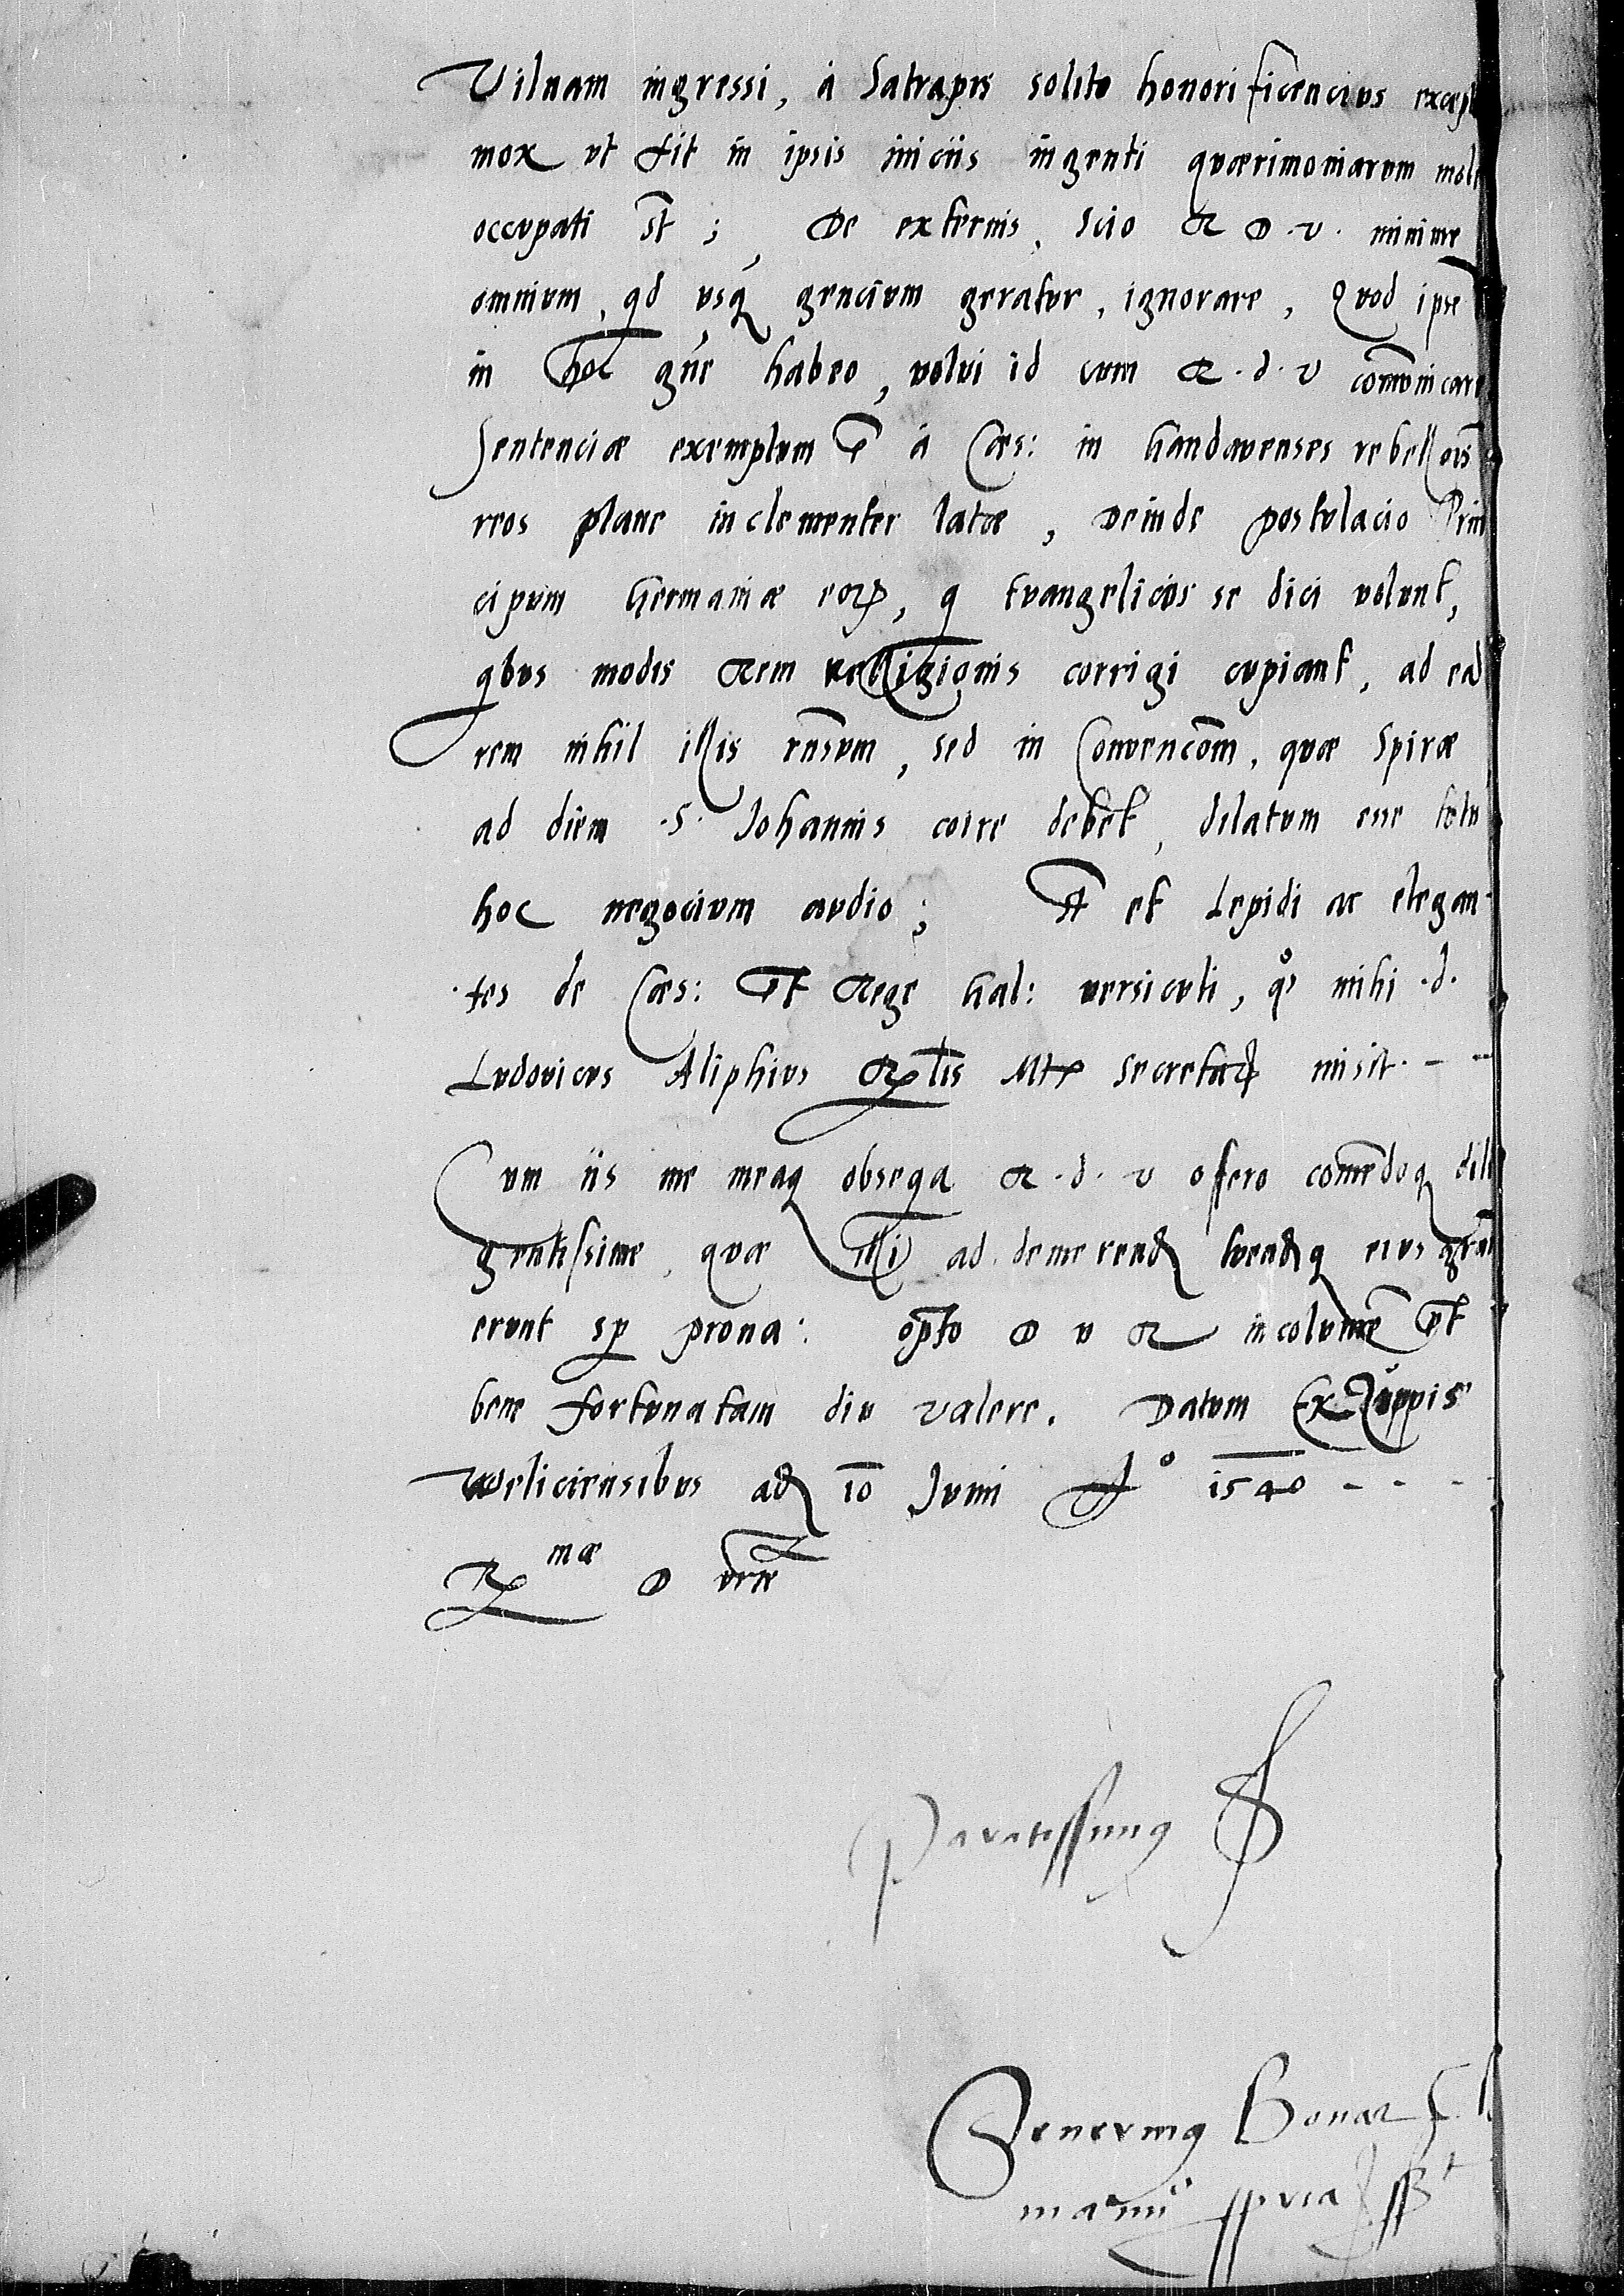 Vilnam ingressi, à Satrapis solito honorificencius except
mox vt fit in ipsis iniciis ingenti quærimoniarum mol
occupati st̄ ; De externis, scio R D . v . minime
omnium, qd vsq gencium geratur, ignorare, Quod ipse
in hoc gn̄e habeo, volui id cum R . d . v com̄unicare
Sentenciæ exemplum ē à Cæs: in Gandavenses rebell
reos plane inclementer latæ, deinde postulacio Prin
cipum Germaniæ eoꝝ, q Evangelicos se dici volunt,
qbus modis Rem relligionis corrigi cupiant, ad ea
rem nihil illis rn̄sum, sed in Convencōm, quæ Spiræ
ad diem .S. Johannis coire debet, dilatum esse totu
hoc negocium audio; St̄ et Lepidi ac elegan-
tes de Cæs: et Rege Gal: versiculi, qos mihi .d.
Ludovicus Aliphius R lis Mtꝭ Secretaꝝ misit. - -
Cum iis me meaq obseqa R . d . v offero com̄edoq dili
gentissime, quæ illi ad demerendā tuendāq eius grām
erunt sp prona: opto D v R incolumē et
bene fortunatam diu valere. Datum Ex Zuppis
Weliciensibus ad 10 Junii A° 1540 - - -
R mæ D vræ
Paratissimus S
Severinus Bonar
manu ppria sst